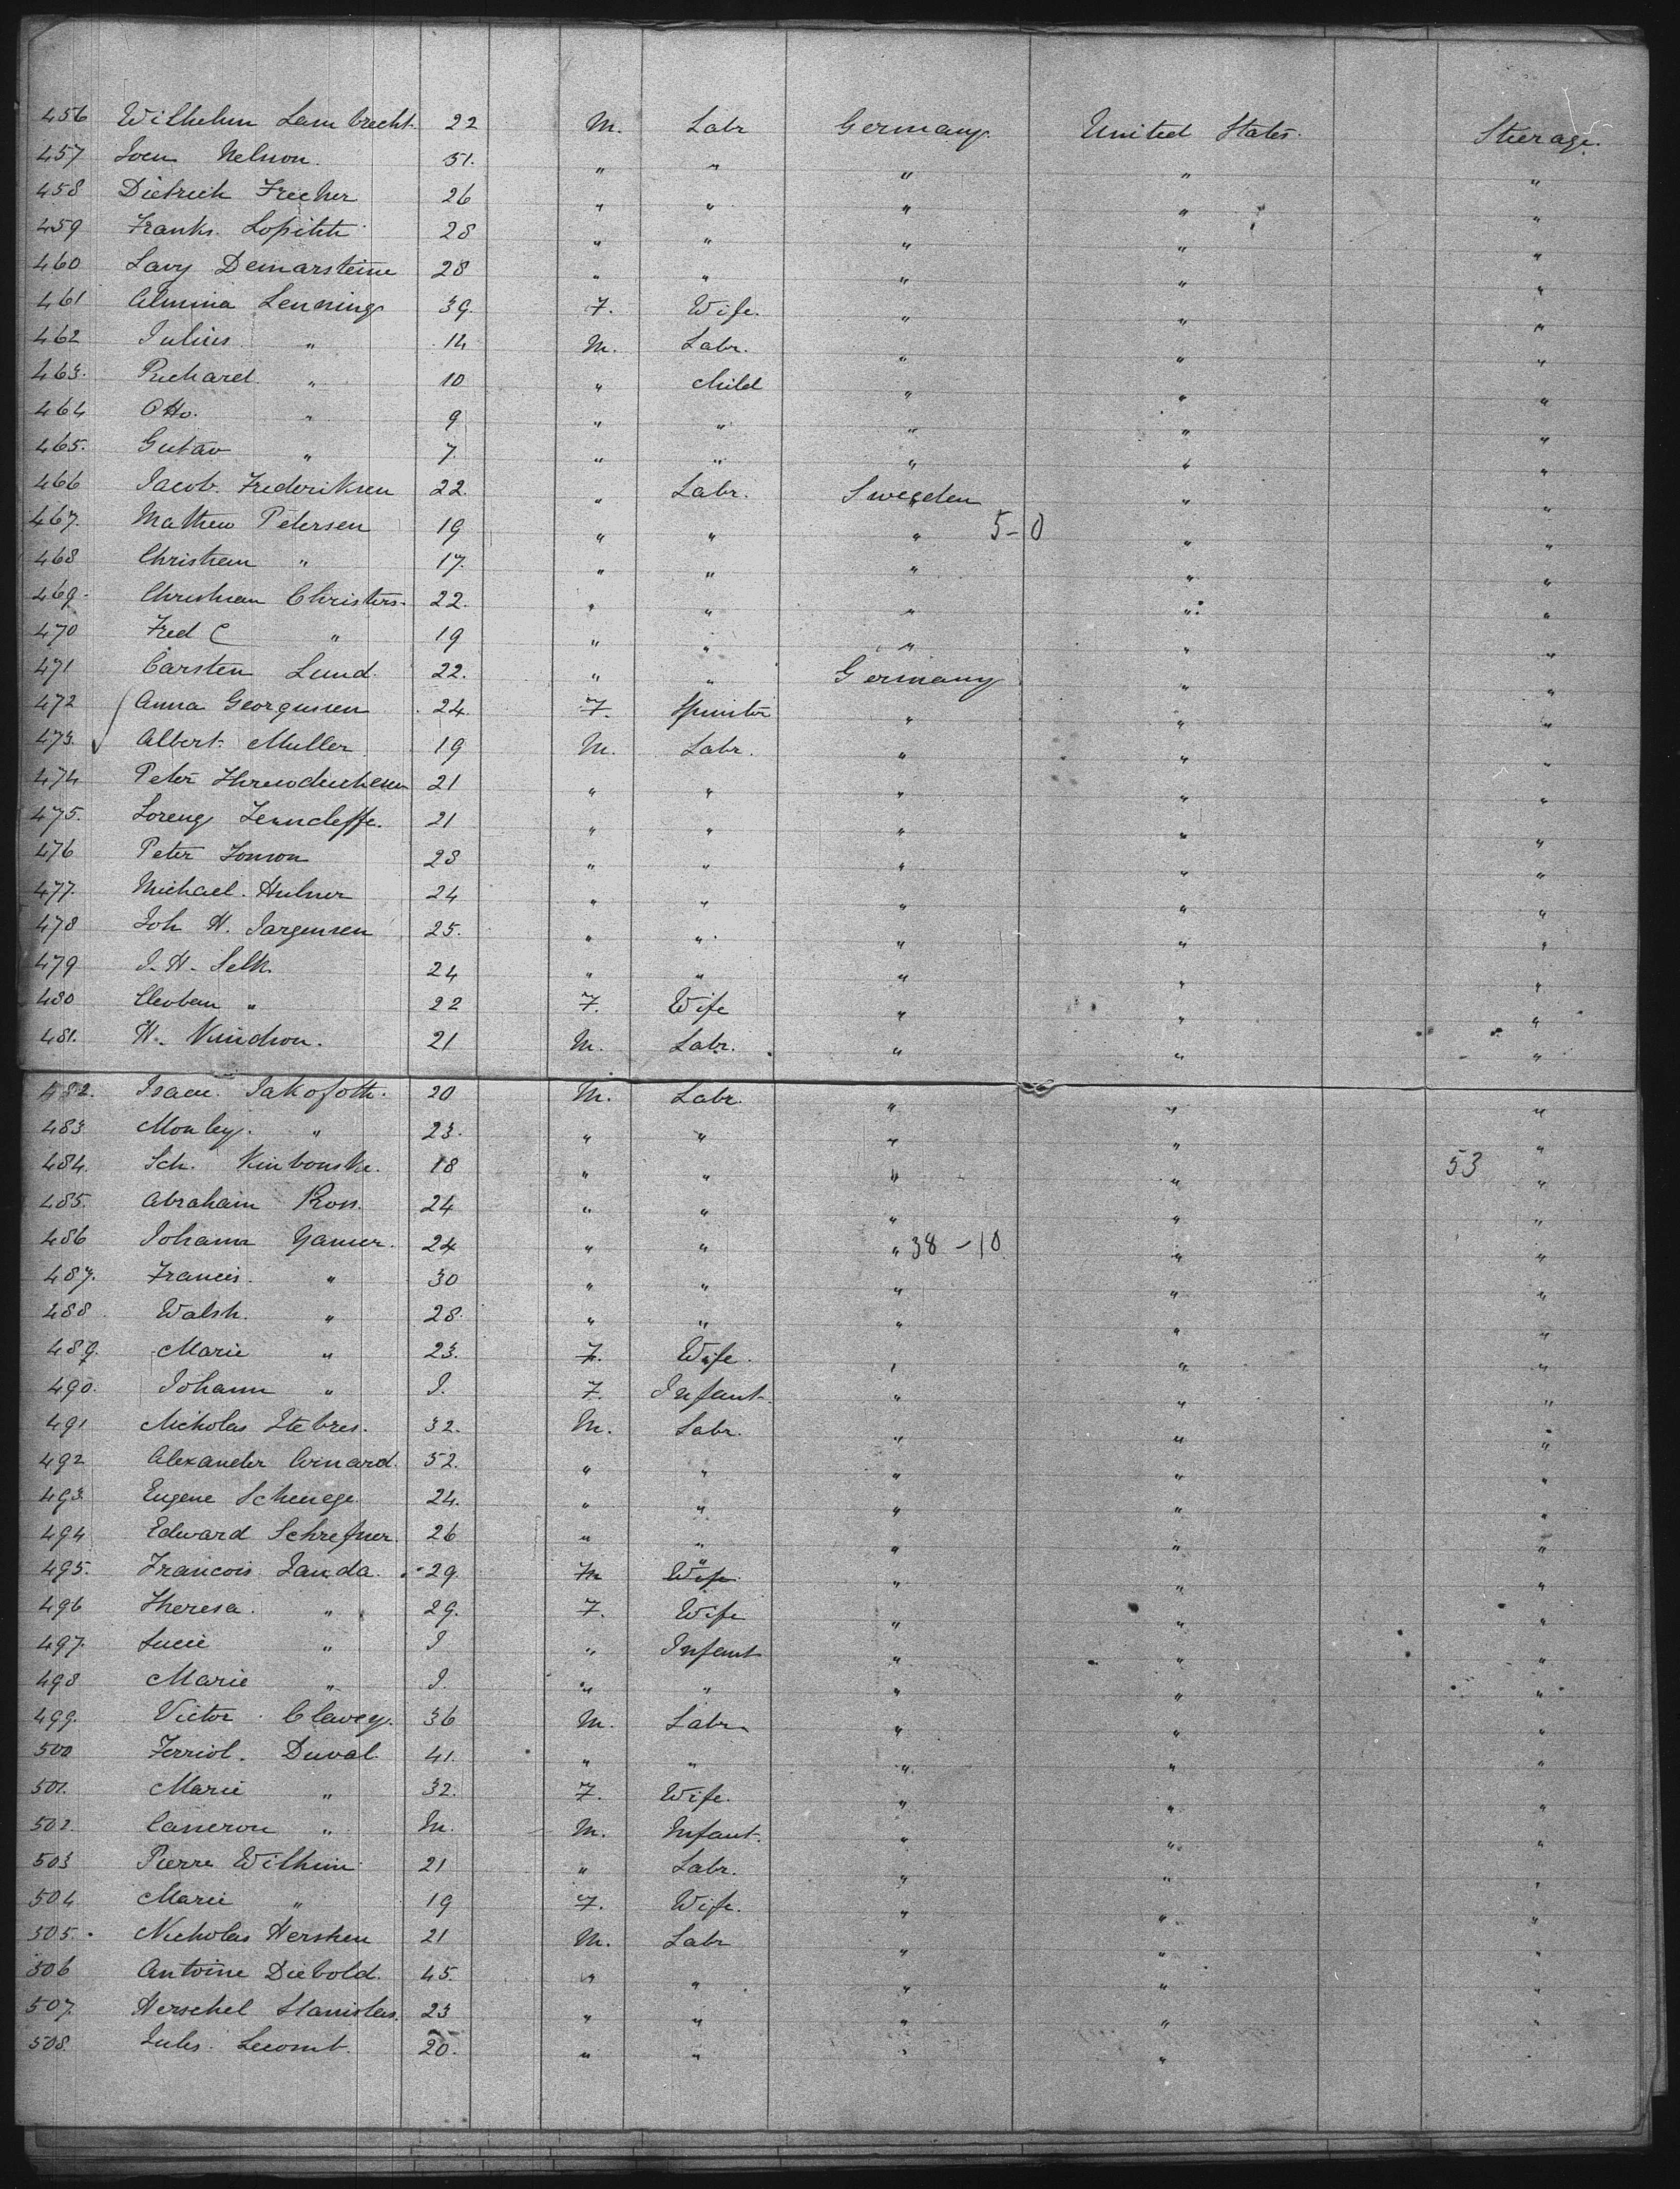 456 Wilhelm Lambrecht. 22 M. Labr Germany. United States. Steerage.
457 Joen Nelson. 51. " " " " "
458 Dietrich Frecher 26 " " " " "
459 Franks. Lopitit 28 " " " " "
460 Lavy Demarsteine 28 " " " " "
461 Almina Lenning 39. F. Wife. " " "
462 Julius " 14 M. Labr. " " "
463. Richard. " 10 " Child " " "
464 Otto. " 9 " " " " "
465. Gutav " 7. " " " " "
466 Jacob. Frederiksen 22. " Labr. Sweden " "
467. Mathew Petersen 19 " " " 5-0 " "
468 Christien " 17. " " " " "
469. Christian Christers. 22. " " " " "
470 Fred C " 19 " " " " "
471 Carsten Lund. 22. " " Germany " "
472 Anna Georgusen 24. F. Spinster " " "
473. Albert. Muller. 19 M. Labr. " " "
474 Peter 21 " " " " "
475. Loreng 21 " " " " "
476 Peter Jonson 28 " " " " "
477. Michael. Hulner 24 " " " " "
478 Joh H. Jargensen 25. " " " " "
479 J. H. Selk. 24 " " " " "
480 " 22 F. Wife " " "
481. H. 21 M. Labr. " " "
482. Isaac. Jakofoth. 20 M. Labr. " " "
483 Monley. " 23. " " " " "
484. Sch. Kinbouske. 18 " " " " 53 "
485. Abraham Ross. 24 " " " " "
486 Johann Yamer. 24 " " " 38-10 " "
487. Francis. " 30 " " " " "
488. Walsh. " 28. " " " " "
489. Marie " 23. F. Wife. " " "
490. Johann " I. F. Infant. " " "
491 Nicholas Stebres. 32. M. Labr. " " "
492 Alexander 52. " " " " "
493 Eugene Scheuege 24. " " " " "
494 Edward Schrefner. 26 " " " " "
495. Francois Janda. 29. M Wife " " " "
496 Theresa. " 29. F. Wife " " "
497. Lucie " I " Infant " " "
498 Marie " I. " " " " "
499. Victor. Clavey. 36 M. Labr. " " "
500 Ferriol. Duval. 41. " " " " "
501. Marie " 32. F. Wife. " " "
502. Cameron " M. M. Infant. " " "
503 Pierre Wilhim. 21 " Labr. " " "
504 Marie " 19 F. Wife. " " "
505. Nicholas Hershen 21 M. Labr " " "
506 Antoine Diebold. 45. " " " " "
507. Herschel Stanislas. 23 " " " " "
508. Jules. Lecomt. 20. " " " "